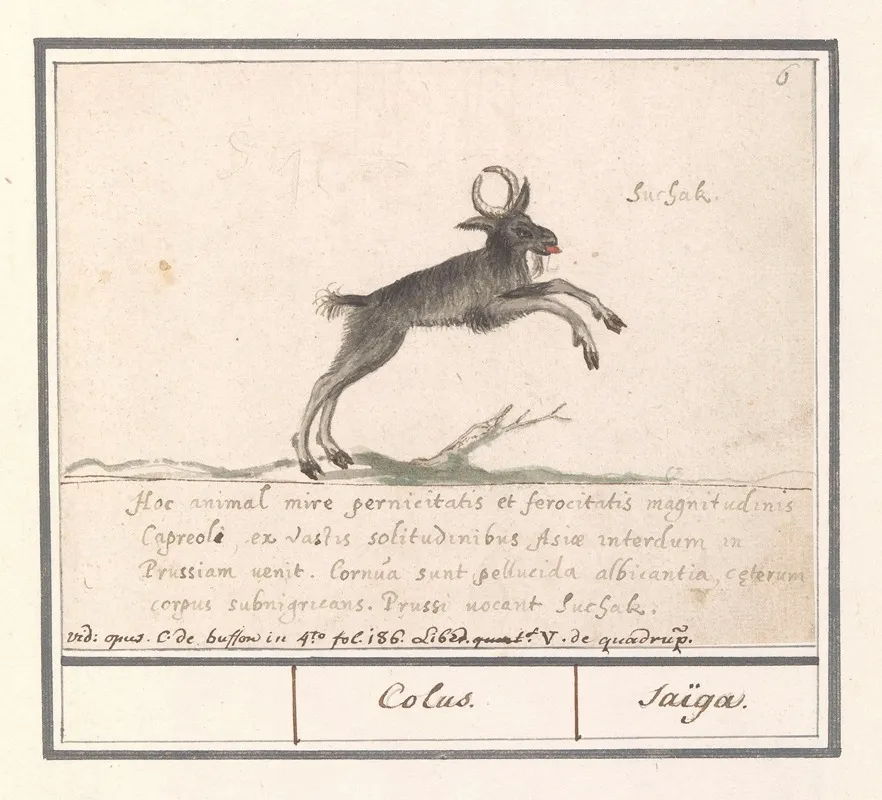 6
Suchak.
Hoc animal mire pernicitatis et ferocitatis magnitudinis
Capreoli, ex vastis solitudinibus Asiæ interdum in
Prussiam uenit. Cornua sunt pellucida albicantia, cęterum
corpus subnigricans. Prussi uocant Suchak.
vid: opus. C. de buffon in 4to fol. 186. V. de quadrup.
Colus.
Saïga.